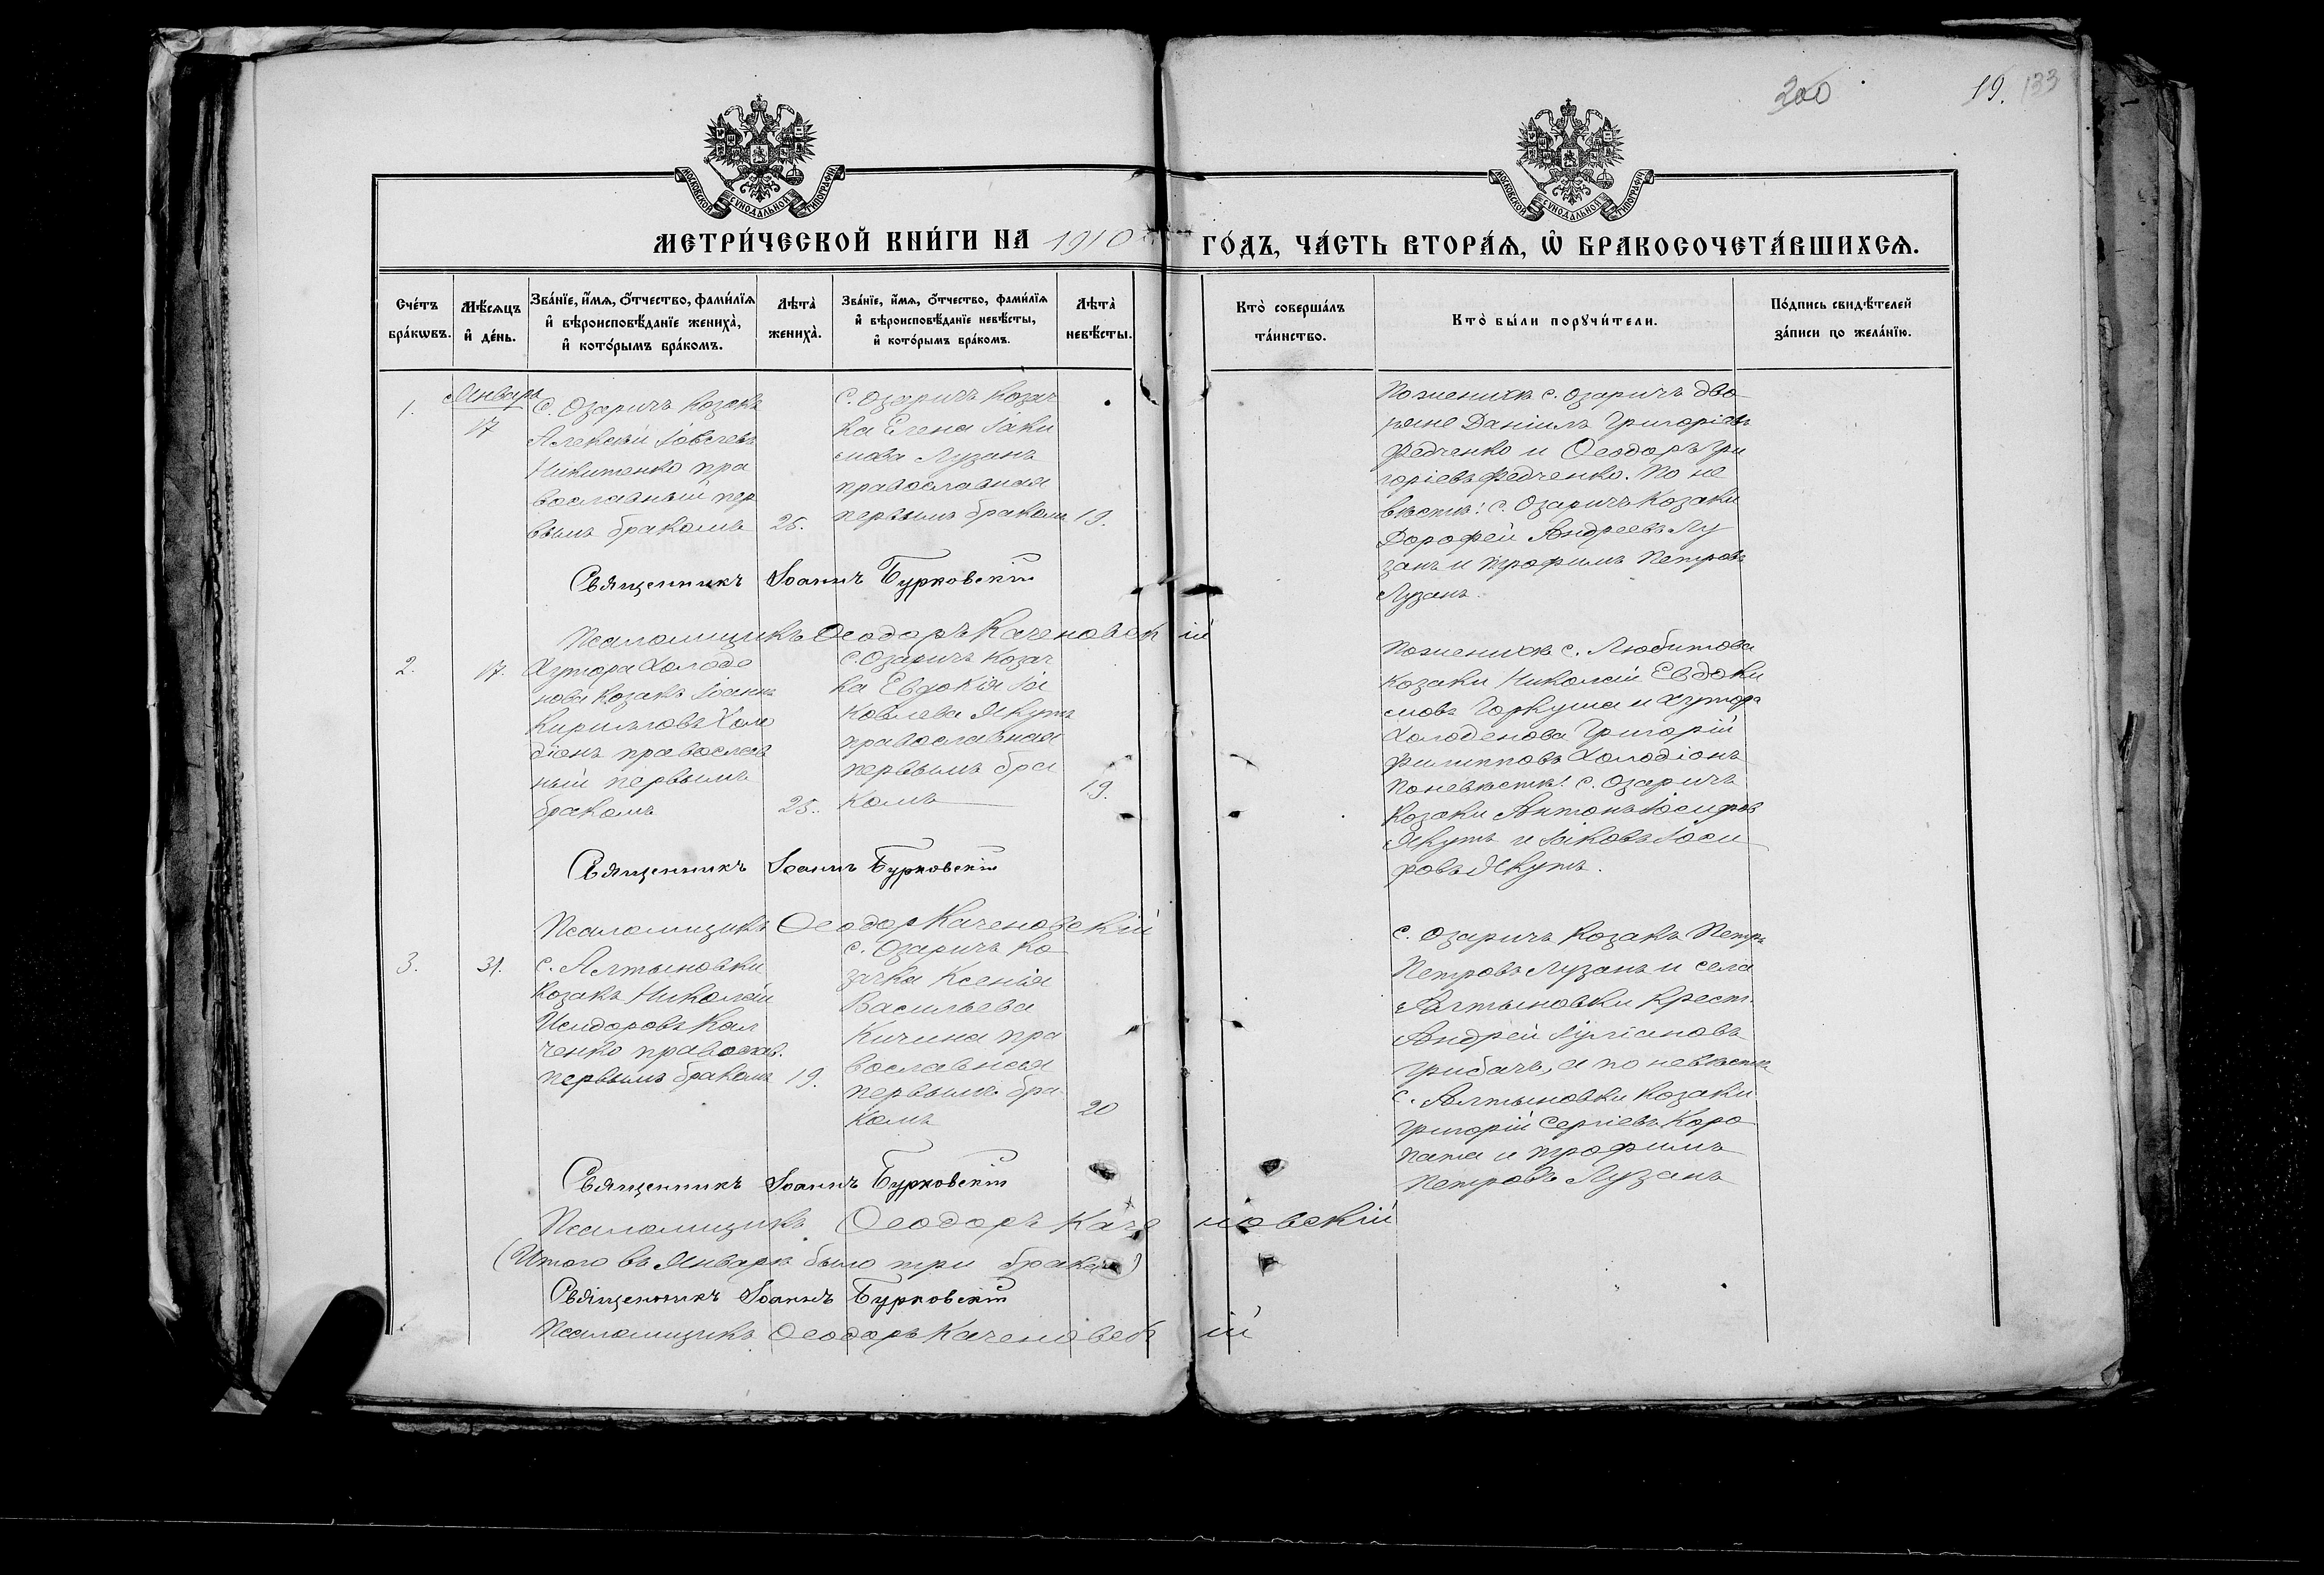 200
19. 133
МОСКОВСКОЙ СѴНОДАЛЬНОЙ ТИПОГРАФІИ
МОСКОВСКОЙ СѴНОДАЛЬНОЙ ТИПОГРАФІИ
МЕТРИ́ЧЕСКОЙ КНИ́ГИ НА 1910
ГО́ДЪ, ЧА́СТЬ ВТОРА́Ѧ, Ѡ҆ БРАКОСОЧЕТА́ВШИХСѦ.
Сче́тъ
бра́кѡвъ.
Мѣ́сѧцъ
и҆ де́нь.
Зва́нїе, и҆́мѧ, ѻ҆́тчество, фами́лїѧ
и҆ вѣроисповѣ́данїе жениха̀,
и҆ кото́рымъ бра́комъ.
Лѣта̀
жениха̀.
Зва́нїе, и҆́мѧ, ѻ҆́тчество, фами́лїѧ
и҆ вѣроисповѣ́данїе невѣ́сты,
и҆ кото́рымъ бра́комъ.
Лѣта̀
невѣ́сты.
Кто̀ соверша́лъ
та́инство.
Кто̀ бы́ли порꙋчи́тели.
По́дпись свидѣ́телей
за́писи по жела́нїю.
1.
Январь
17
С. Озаричъ козакъ
Алексѣй Іовлевъ
Никитенко пра
вославный пер
вымъ бракомъ
25.
С. Озаричъ козач
ка Елена Іаки
мова Лузанъ
православная
первымъ бракомъ
19.
По женихѣ с. Озаричъ дво
ряне Даніилъ Григоріевъ
Федченко и Ѳеодоръ Гри
горіевъ Федченко. По не
вѣстѣ: с. Озаричъ козаки
Дорофей Андреевъ Лу
занъ и Трофимъ Петровъ
Лузанъ.
Священникъ Іоаннъ Бурковскій
Псаломщикъ Ѳеодоръ Каченовскій
2.
17.
Хутора Холоде
нова козакъ Іоаннъ
Кирилловъ Холо
діонъ православ
ный первымъ
бракомъ
25.
С. Озаричъ козач
ка Евдокія Іа
ковлева Якутъ
православная
первымъ бра
комъ
19.
По женихѣ с. Любитова
козаки Николай Евдоки
мовъ Горкуша и хутора
Холоденова Григорій
Филипповъ Холодіонъ
По невѣстѣ: с. Озаричъ
козаки Антонъ Іосифовъ
Якутъ и Іаковъ Іоси
фовъ Якутъ.
Священникъ Іоаннъ Бурковскій
Псаломщикъ Ѳеодоръ Каченовскій
3.
31.
с. Алтыновки
козакъ Николай
Исидоровъ Кал
ченко православ.
первымъ бракомъ
19.
с. Озаричъ ко
зачка Ксенія
Васильева
Кичина пра
вославная
первымъ бра
комъ
20
с. Озаричъ козакъ Петръ
Петровъ Лузанъ и села
Алтыновки крест.
Андрей Іуліановъ
Грибачъ, а по невѣстѣ
с. Алтыновки козаки
Григорій Сергіевъ Коро
пата и Трофимъ
Петровъ Лузанъ
Священникъ Іоаннъ Бурковскій
Псаломщикъ Ѳеодоръ Каченовскій
(Итого въ Январѣ было три брака)
Священникъ Іоаннъ Бурковскій
Псаломщикъ Ѳеодоръ Каченовскій